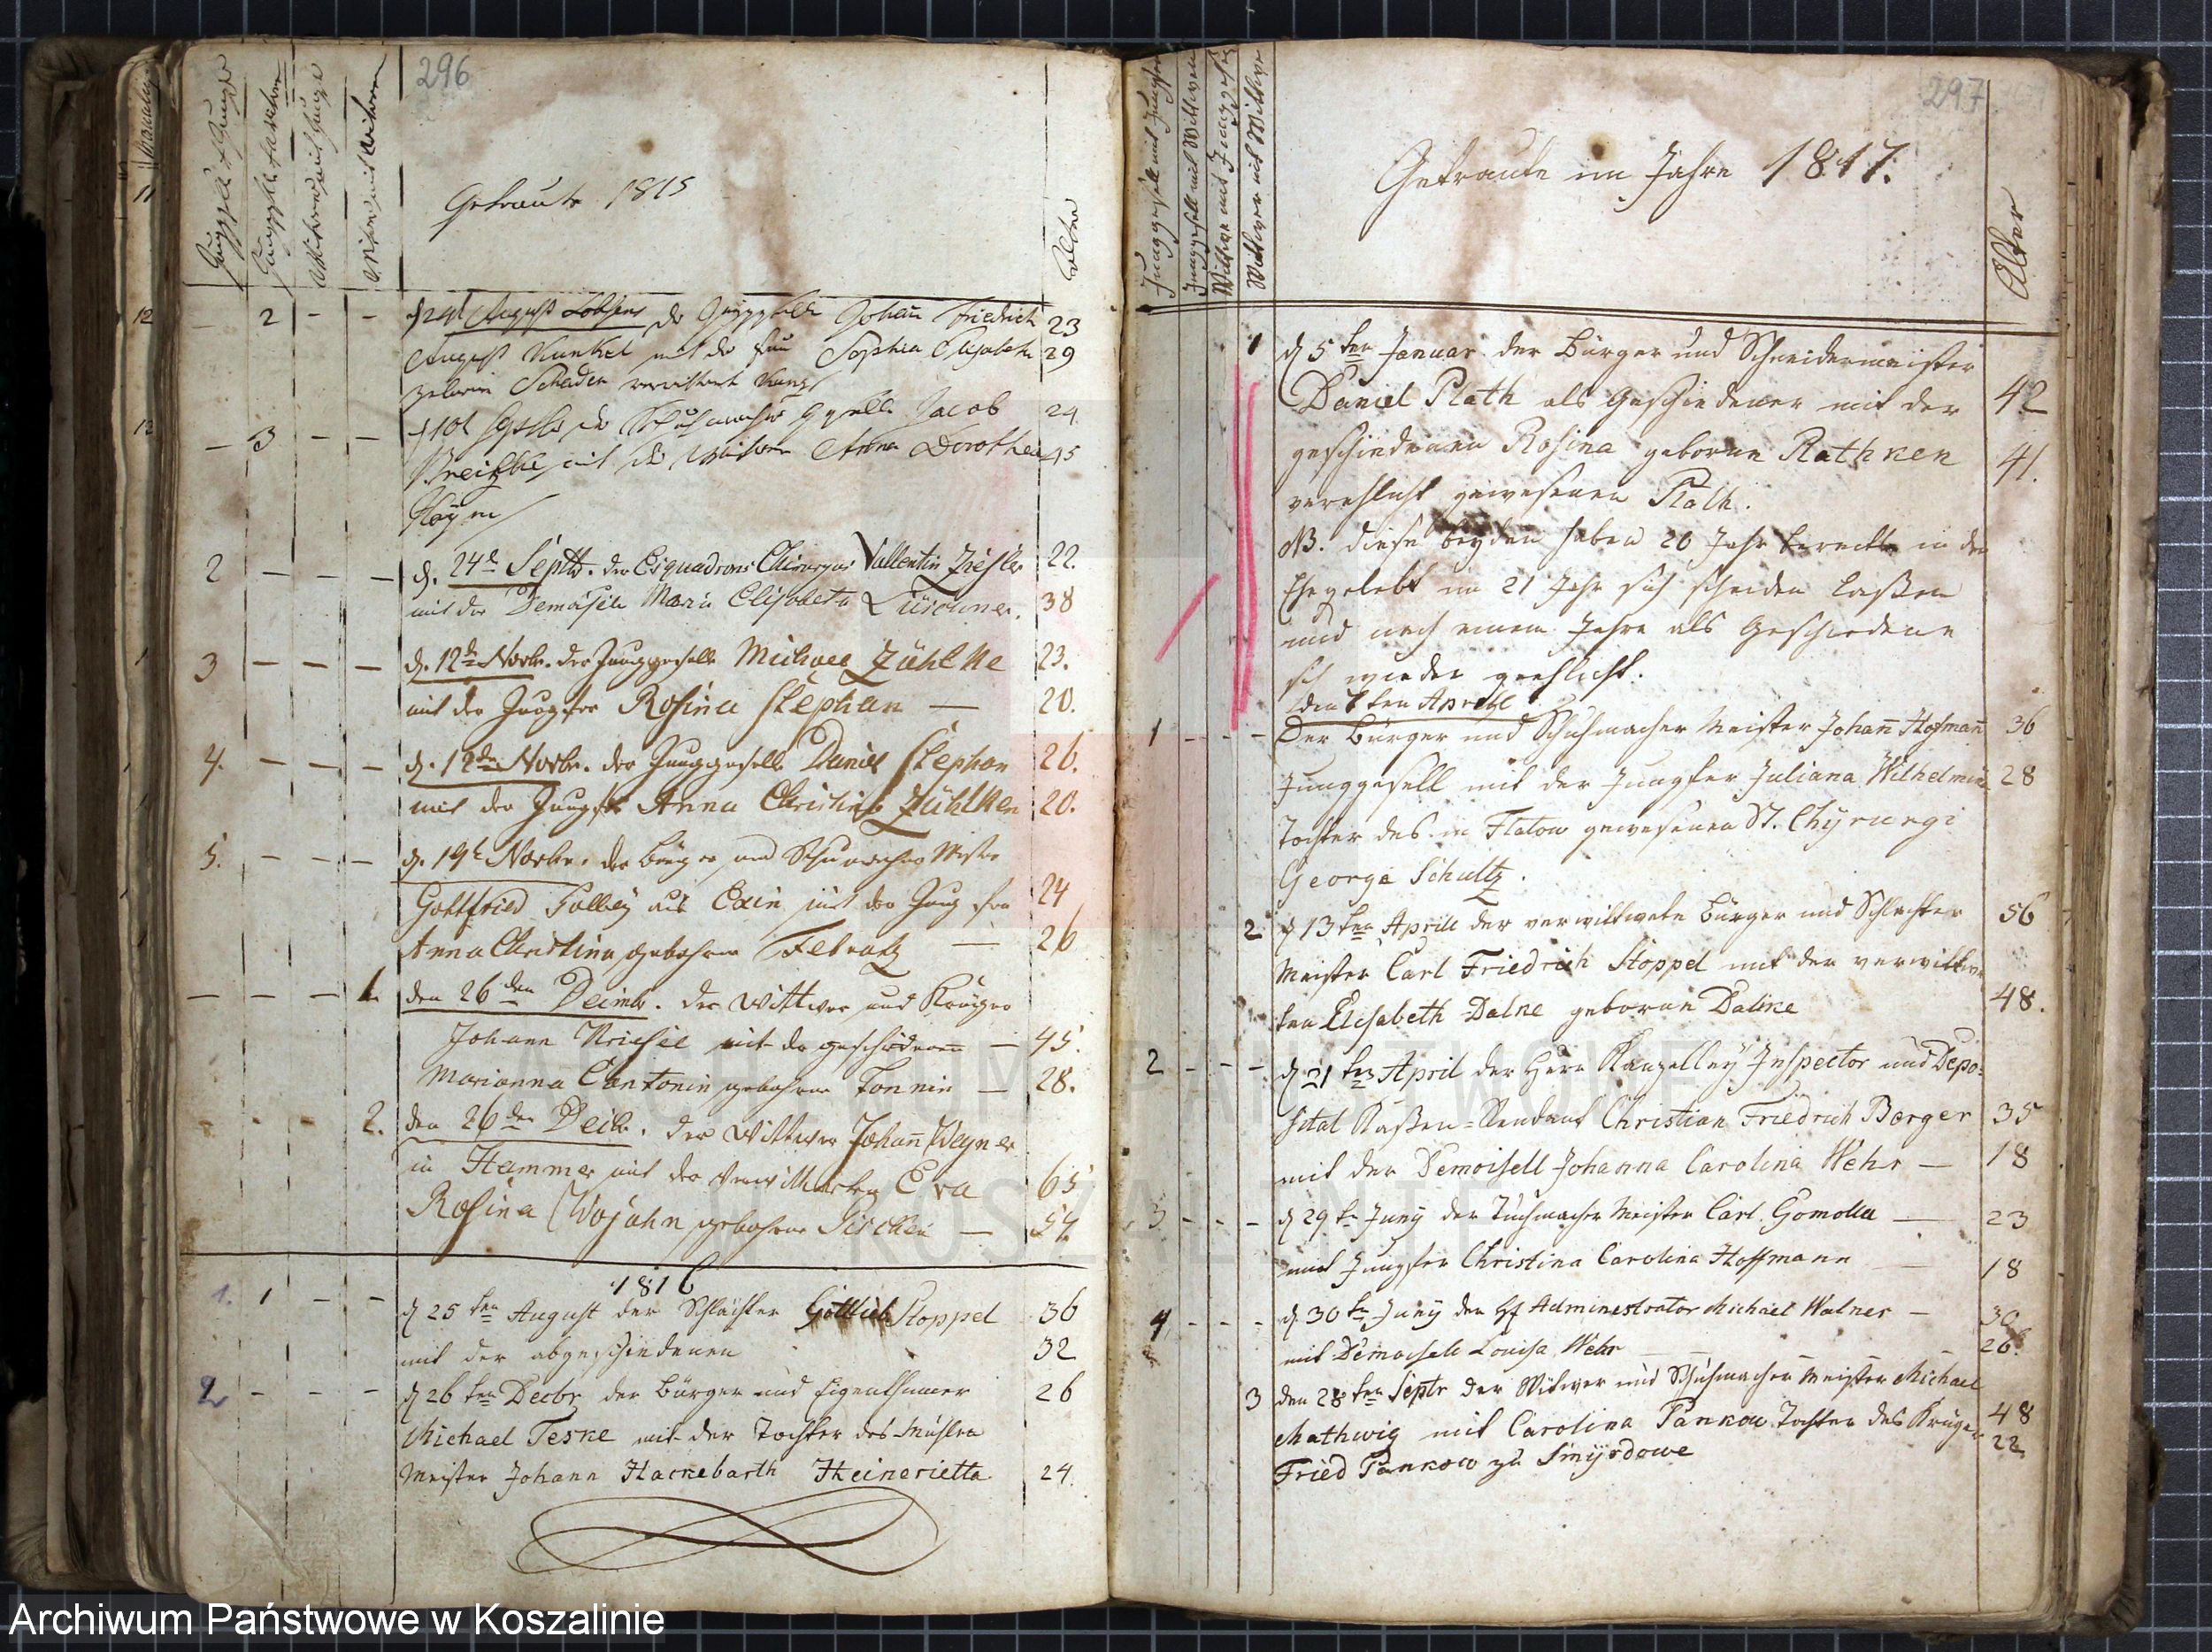 296
Getraute 1815
Alter
12
2
August
der
Johann Friedrich
23
August Kunkel mit der Frau Sophia Elisabeth
29
12
3
Jacob
24
mit der Witwe Anna Dorothea
45
2
d. 24t Septb. der Esquadrons Chirurgus Vallentin Ziesler
22.
mit der Demoiselle Maria Elisabeth
38
3
d. 12t Novbr. der Junggeselle Michael Zühlke
23.
mit der Jungfer Rosina Stephan —
20.
4.
d. 12t Novbr. der Junggeselle Daniel Stephan
26.
mit der Jungfer Anna Christine Zühlken
20.
5.
d. 19t Novbr. der Bürger und Schumacher Mster
Gottfried aus Exin mit der Jungfer
24
Anna Christina gebohrne —
26
1.
den 26ten Decmbr. der Wittwer und Krüger
Johann mit der geschiedenen —
45.
Marianna gebohrne —
28.
2.
den 26ten Decbr. der Wittwer Johann
in Hammer mit der Verwittweten Eva
65
Rosina Wojahn gebohrne —
54
1816
1. 1
d 25ten August der Schlächter Gottlieb Stoppel
36
mit der abgeschiedenen
32
2
d 26ten Decbr der Bürger und Eigenthümer
26
Michael Teske mit der Tochter des Mühlen
Meister Johann Hackebarth Heinerietta
24.
297
Junggesell mit Jungfer
Junggesell mit Wittwen
Wittwer mit Jungfer
Wittwer mit Wittwe
Getraute im Jahre 1817.
Alter
1
d 5ten Januar der Bürger und Schneidermeister
Daniel Plath als Geschiedener mit der
42
geschiedenen Rosina geborne Rathken
41.
verehlicht gewesenen Plath.
NB. diese beyden haben 20 Jahr bereits in der
Ehe gelebt im 21 Jahr sich scheiden laßen
und nach einem Jahre als Geschiedene
sich wieder geehlicht.
den ten Aprill
1
Der Bürger und Schuhmacher Meister Johann Hofmann
36
Junggesell mit der Jungfer Juliana Wilhelmine
28
Tochter des in Flatow gewesenen St. Chyrurgi
George Schultz.
2
d 13ten Aprill der verwittwete Bürger und Schlachter
56
Meister Carl Friedrich Stoppel mit der verwittwe
ten Elisabeth Dalke geborne Dalke
48.
2
d 21ten April der Herr Kanzelley Inspector und Depo-
sital Kaßen-Rendant Christian Friedrich Berger
35
mit der Demoisell Johanna Carolina Wehr —
18
3
d 29t Juny der Tuchmacher Meister Carl Gomolla —
23
mit Jungfer Christina Carolina Hoffmann —
18
4
d 30t Juny der H Administrator Michael Walner —
30
mit Demoiselle Louisa Wehr —
26.
3
den 28ten Septr der Witwer und Schuhmacher Meister Michael
Mathwig mit Carolina Pankow Tochter des Krüger
48
22
Fried Pankow zu Smyrdowe
ARCHIWUM PAŃSTWOWE
W KOSZALINIE
Archiwum Państwowe w Koszalinie